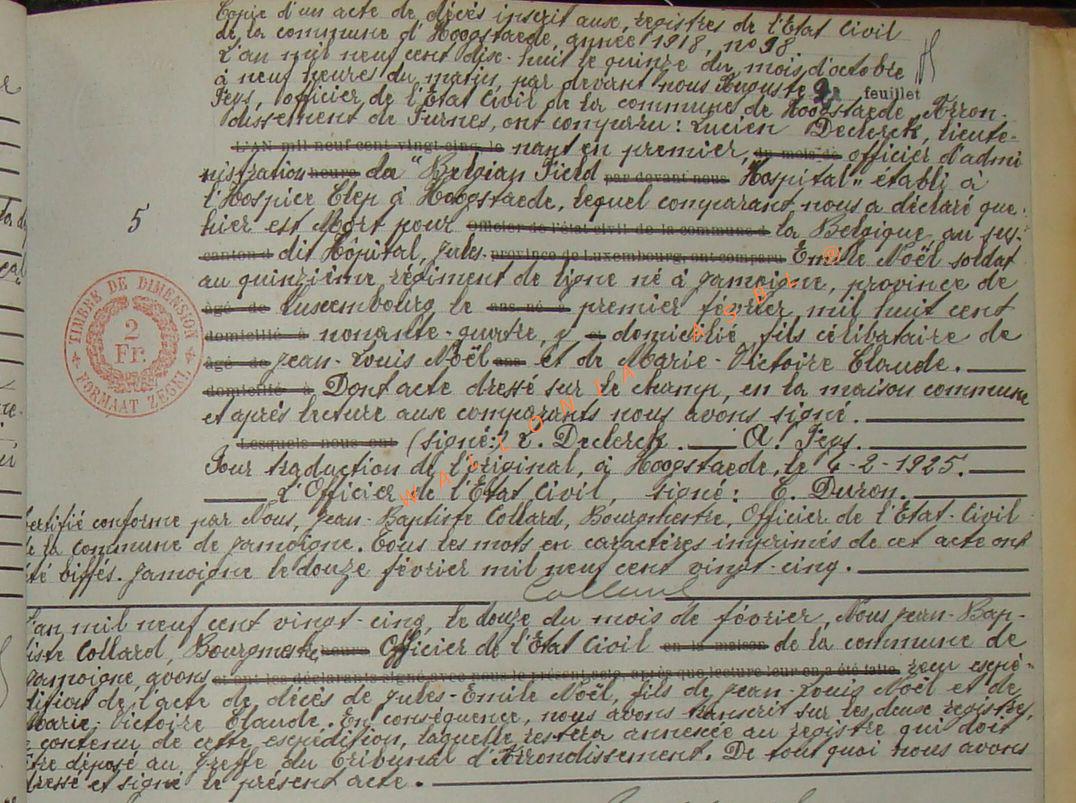 Copie d'un acte de décès inscrit aux registres de l'Etat Civil
de la commune d'Hoogstaede, année 1918, no 98
L'an mil neuf cent dix-huit le quinze du mois d'octobre
à neuf heures du matin, par devant nous Auguste 2e feuillet
Feys, officier de l'Etat Civil de la commune de Hoogstaede, Arron-
dissement de Furnes, ont comparu : Lucien Declerck, lieute-
L'AN mil neuf cent vingt-cinq, le nant en premier, du mois de officier d'admi
nistration heure da "Belgian Field par devant nous Hospital" établi à
l'Hospice Clep à Hoogstaede, lequel comparant nous a déclaré que
5 hier est Mort pour Officier de l'état civil de la commune d la Belgique au sus-
canton d dit Hôpital, Jules- province de Luxembourg, ont comparu Emile Noël soldat
au quinzième régiment de ligne né à Jamoigne, province de
âgé de Luxembourg le ans, né à premier février, mil huit cent
domicilié à nonante-quatre, y et domicilié, fils célibataire de
âgé de Jean-Louis Noël ans et de Marie-Victoire Claude.
domicilié à Dont acte dressé sur le champ, en la maison commune
et après lecture aux comparants nous avons signé.
Lesquels nous ont (signé:) L. Declerck. A. Feys.
Pour traduction de l'original, à Hoogstaede, le 4-2-1925.
L'Officier de l'Etat Civil, signé : E. Duron.
TIMBRE DE DIMENSION
2
Fr.
FORMAAT ZEGEL
Certifié conforme par Nous, Jean-Baptiste Collard, Bourgmestre, Officier de l'Etat-Civil
de la commune de Jamoigne. Tous les mots en caractères imprimés de cet acte ont
été biffés. Jamoigne le douze février mil neuf cent vingt-cinq.
Collard
L'an mil neuf cent vingt-cinq, le douze du mois de février, Nous Jean-Bap-
tiste Collard, Bourgmestre heure Officier de l'Etat Civil en la maison de la commune de
Jamoigne avons et ont les déclarants signé avec nous le présent acte, après que lecture leur en a été faite reçu expé-
dition de l'acte de décès de Jules-Emile Noël, fils de Jean-Louis Noël et de
Marie-Victoire Claude. En conséquence, nous avons transcrit sur les deux registres,
le contenu de cette expédition, laquelle restera annexée au registre qui doit
être déposé au greffe du tribunal d'Arrondissement. De tout quoi nous avons
dressé et signé le présent acte.
WALLONIA ASBL ®